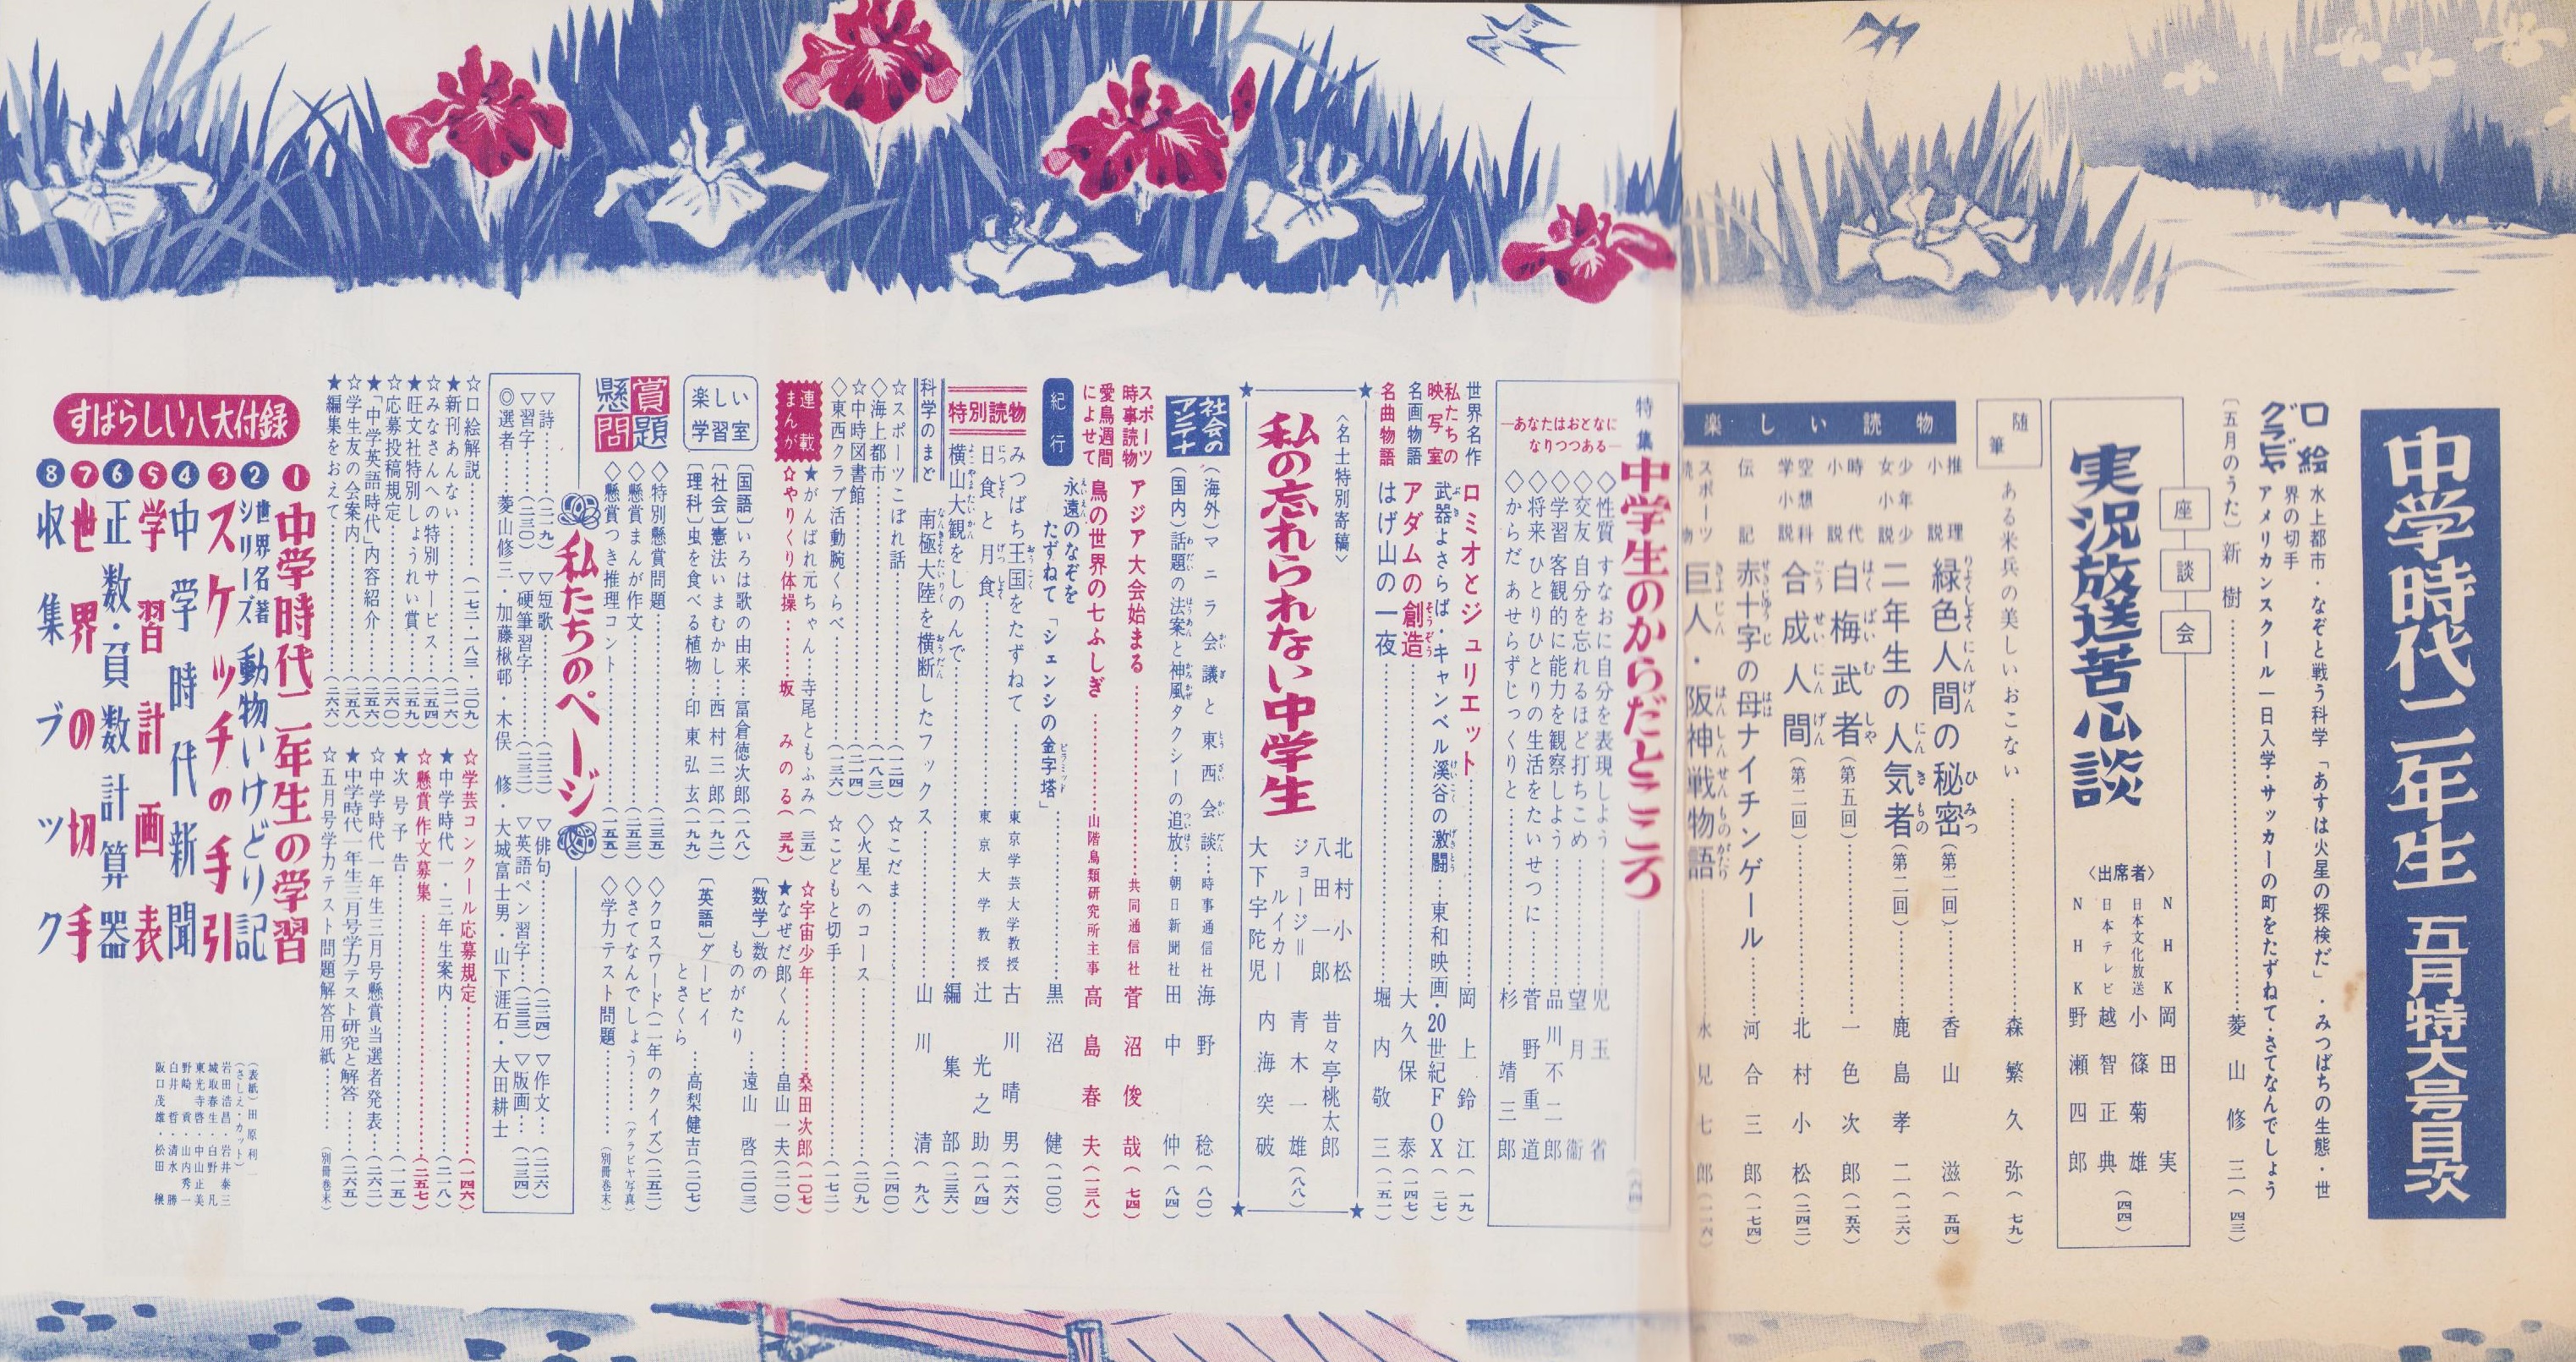 中学時代二年生 五月特大号目次
口絵 グラビヤ
水上都市・なぞと戦う科学「あすは火星の探検だ」・みつばちの生態・世
界の切手
アメリカンスクール一日入学・サッカーの町をたずねて・さてなんでしょう
〔五月のうた〕新樹 菱山修三(四三)
座談会
実況放送苦心談
〈出席者〉
NHK 岡田実
日本文化放送 小篠菊雄
日本テレビ 越智正典
NHK 野瀬四郎
(四四)
随筆
ある米兵の美しいおこない 森繁久弥(七九)
楽しい読物
推理小説 緑色人間の秘密(第二回) 香山滋(五四)
少年少女小説 二年生の人気者(第二回) 鹿島孝二(一二六)
時代小説 白梅武者(第五回) 一色次郎(一五六)
空想科学小説 合成人間(第二回) 北村小松(二四二)
伝記 赤十字の母ナイチンゲール 河合三郎(一七四)
スポーツ読物 巨人・阪神戦物語 水見七郎
特集 中学生のからだところ
―あなたはおとなになりつつある―
◇性質 すなおに自分を表現しよう 児玉省
◇交友 自分を忘れるほど打ちこめ 望月衛
◇学習 客観的に能力を観察しよう 品川不二郎
◇将来 ひとりひとりの生活をたいせつに 菅野重道
◇からだ あせらずじっくりと 杉靖三郎
世界名作 ロミオとジュリエット 岡上鈴江(一九)
私たちの映写室 武器よさらば・キャンベル渓谷の激闘 東和映画・20世紀FOX(二七)
名画物語 アダムの創造 大久保泰(一四七)
名曲物語 はげ山の一夜 堀内敬三(一五一)
〈名士特別寄稿〉
私の忘れられない中学生
北村小松
八田一郎
ジョージ=ルイカー
大下宇陀児
昔々亭桃太郎
青木一雄
内海突破
(八八)
社会のアンテナ
(海外)マニラ会議と東西会談 時事通信社 海野稔(八〇)
(国内)話題の法案と神風タクシーの追放 朝日新聞社 田中仲(八四)
スポーツ時事読物 アジア大会始まる 共同通信社 菅沼俊哉(七四)
愛鳥週間によせて 鳥の世界の七ふしぎ 山階鳥類研究所主事 高島春夫(一三八)
紀行
永遠のなぞをたずねて「シェンシの金字塔」 黒沼健(一〇〇)
特別読物
みつばち王国をたずねて 東京学芸大学教授 古川晴男(一六六)
日食と月食 東京大学教授 辻光之助(一八四)
横山大観をしのんで 編集部(二三六)
科学のまど 南極大陸を横断したフックス 山川清(九八)
☆スポーツこぼれ話(一二四)
◇海上都市(一八三)
☆中時図書館(二一四)
◇東西クラブ活動腕くらべ(一三六)
☆こだま(二四〇)
◇火星へのコース(二〇九)
☆こどもと切手(一七二)
連載まんが
★がんばれ元ちゃん 寺尾ともふみ(三五)
☆やりくり体操 坂みのる(三九)
☆宇宙少年 桑田次郎(一〇七)
★なぜだ郎くん 畠山一夫(二一〇)
楽しい学習室
〔国語〕いろは歌の由来 冨倉徳次郎(一八八)
〔社会〕憲法いまむかし 西村三郎(一九二)
〔理科〕虫を食べる植物 印東弘玄(一九九)
〔数学〕数のものがたり 遠山啓(二〇三)
〔英語〕ダービイとさくら 高梨健吉(二〇七)
懸賞問題
◇特別懸賞問題(二三五)
◇懸賞まんが作文(二五三)
◇懸賞つき推理コント(一五五)
◇クロスワード(二年のクイズ)(二五二)
◇さてなんでしょう(グラビヤ写真)
◇学力テスト問題(別冊巻末)
私たちのページ
▽詩(二二九) ▽短歌(二三二) ▽俳句(二三四) ▽作文(二二六)
▽習字(二三〇) ▽硬筆習字(二三二) ▽英語ペン習字(二三三) ▽版画(二三四)
◎選者 菱山修三・加藤楸邨・木俣修・大城富士男・山下涯石・大田耕士
☆口絵解説(一七三・一八三・二〇九)
★新刊あんない(二一六)
☆みなさんへの特別サービス(二五四)
★旺文社特別しょうれい賞(二五九)
☆応募投稿規定(二六〇)
★「中学英語時代」内容紹介(二五六)
☆学生友の会案内(二五八)
★編集をおえて(二六六)
☆学芸コンクール応募規定(一四六)
★中学時代一・三年生案内(二一八)
☆懸賞作文募集(二五七)
★次号予告(一一五)
☆中学時代一年生三月号懸賞当選者発表(二六二)
★中学時代一年生三月号学力テスト研究と解答(二六五)
☆五月号学力テスト問題解答用紙(別冊巻末)
すばらしい八大付録
1 中学時代二年生の学習
2 世界名著シリーズ 動物いけどり記
3 スケッチの手引
4 中学時代新聞
5 学習計画表
6 正数・負数計算器
7 世界の切手
8 収集ブック
(表紙)田原利一
(さしえ・カット)
岩田浩昌・岩井泰三
城取春生・白野凡
東光寺啓・中山正美
野崎貢・山内秀一
白井哲・清水勝
阪口茂雄・松田穣